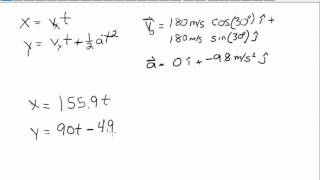 x = vₓt
y = vᵧt + ½at²
v⃗₀ = 180 m/s cos(30°) î +
180 m/s sin(30°) ĵ
a⃗ = 0 î + -9.8 m/s² ĵ
x = 155.9t
y = 90t - 4.9